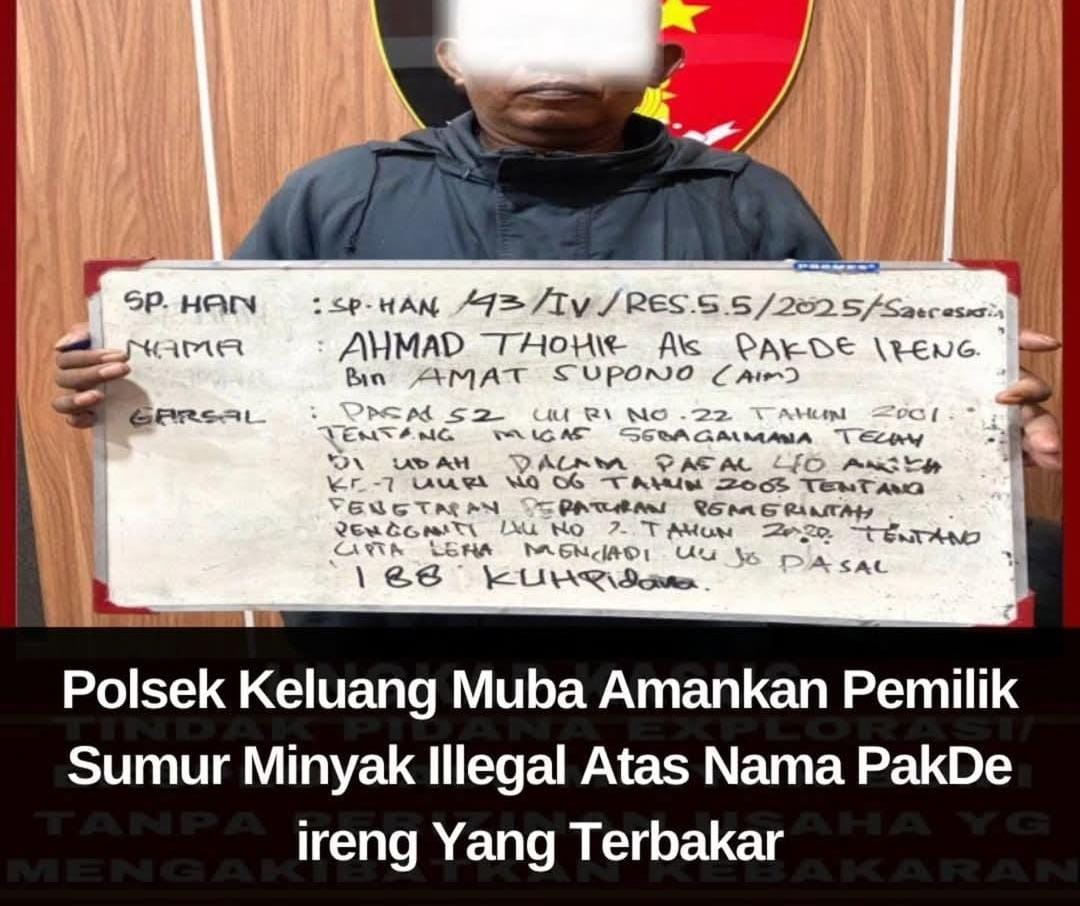 PROMEX
SP. HAN : SP-HAN /43/IV/RES.5.5/2025/Satreskrim
NAMA : AHMAD THOHIR Als PAKDE IRENG.
Bin AMAT SUPONO (Alm)
: PASAL 52 UU RI NO.22 TAHUN 2001.
TENTANG MIGAS SEBAGAIMANA TELAH
DI UBAH DALAM PASAL 40 ANGKA
KE-7 UURI NO 06 TAHUN 2003 TENTANG
PENETAPAN PERATURAN PEMERINTAH
PENGGANTI UU NO 2. TAHUN 2020. TENTAND
CIPTA MENJADI UU Jo PASAL
188 KUHPidana.
Polsek Keluang Muba Amankan Pemilik
Sumur Minyak Illegal Atas Nama PakDe
ireng Yang Terbakar
TINDAK PIDANA EXPLORASI/
TANPA USAHA YG
MENGAKIBATKAN KEBAKARAN